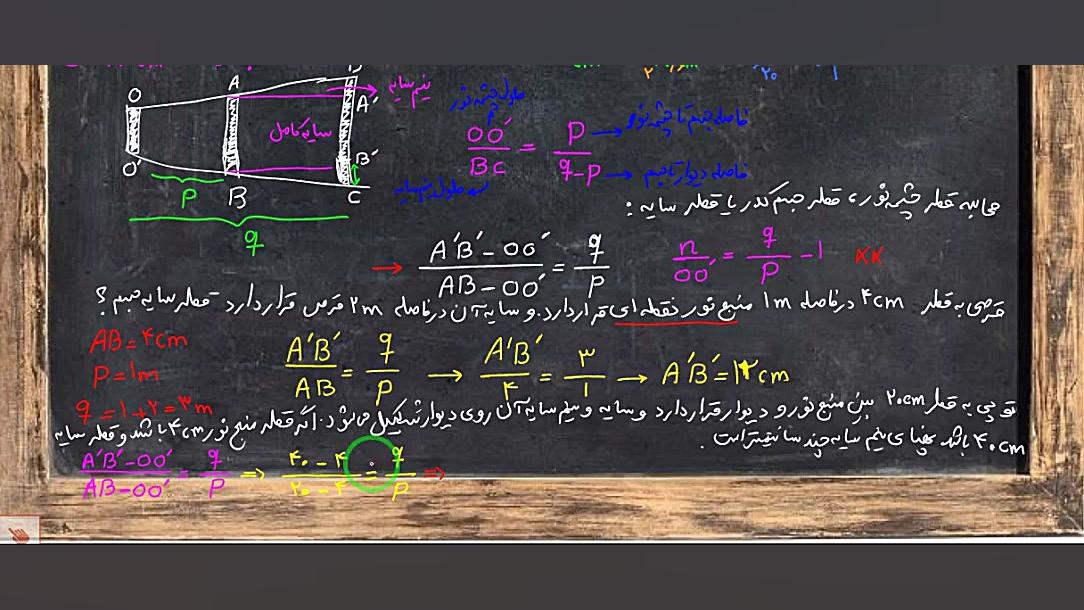 O A A' نیم سایه
طول چشمه نور
سایه کامل
OO' / BC = P / q-P
فاصله جسم تا چشمه نور
فاصله دیوار تا جسم
طول نیم سایه
O' P B B' C
q
محاسبه قطر چشمه نور، قطر جسم کدر یا قطر سایه :
→ A'B' - OO' / AB - OO' = q / P
n / OO' = q / P - 1 **
قرصی به قطر ۴cm در فاصله ۱m منبع نور نقطه ای قرار دارد. و سایه آن در فاصله ۲m قرص قرار دارد قطر سایه جسم؟
AB = ۴cm
P = ۱m
q = ۱ + ۲ = ۳m
A'B' / AB = q / P → A'B' / ۴ = ۳ / ۱ → A'B' = ۱۲cm
توپی به قطر ۲۰cm بین منبع نور و دیوار قرار دارد و سایه و نیم سایه آن روی دیوار تشکیل می شود. اگر قطر منبع نور ۴cm باشد و قطر سایه
۴۰cm باشد پهنای نیم سایه چند سانتیمتر است.
A'B' - OO' / AB - OO' = q / P ⇒ ۴۰ - ۴ / ۲۰ - ۴ = q / P ⇒